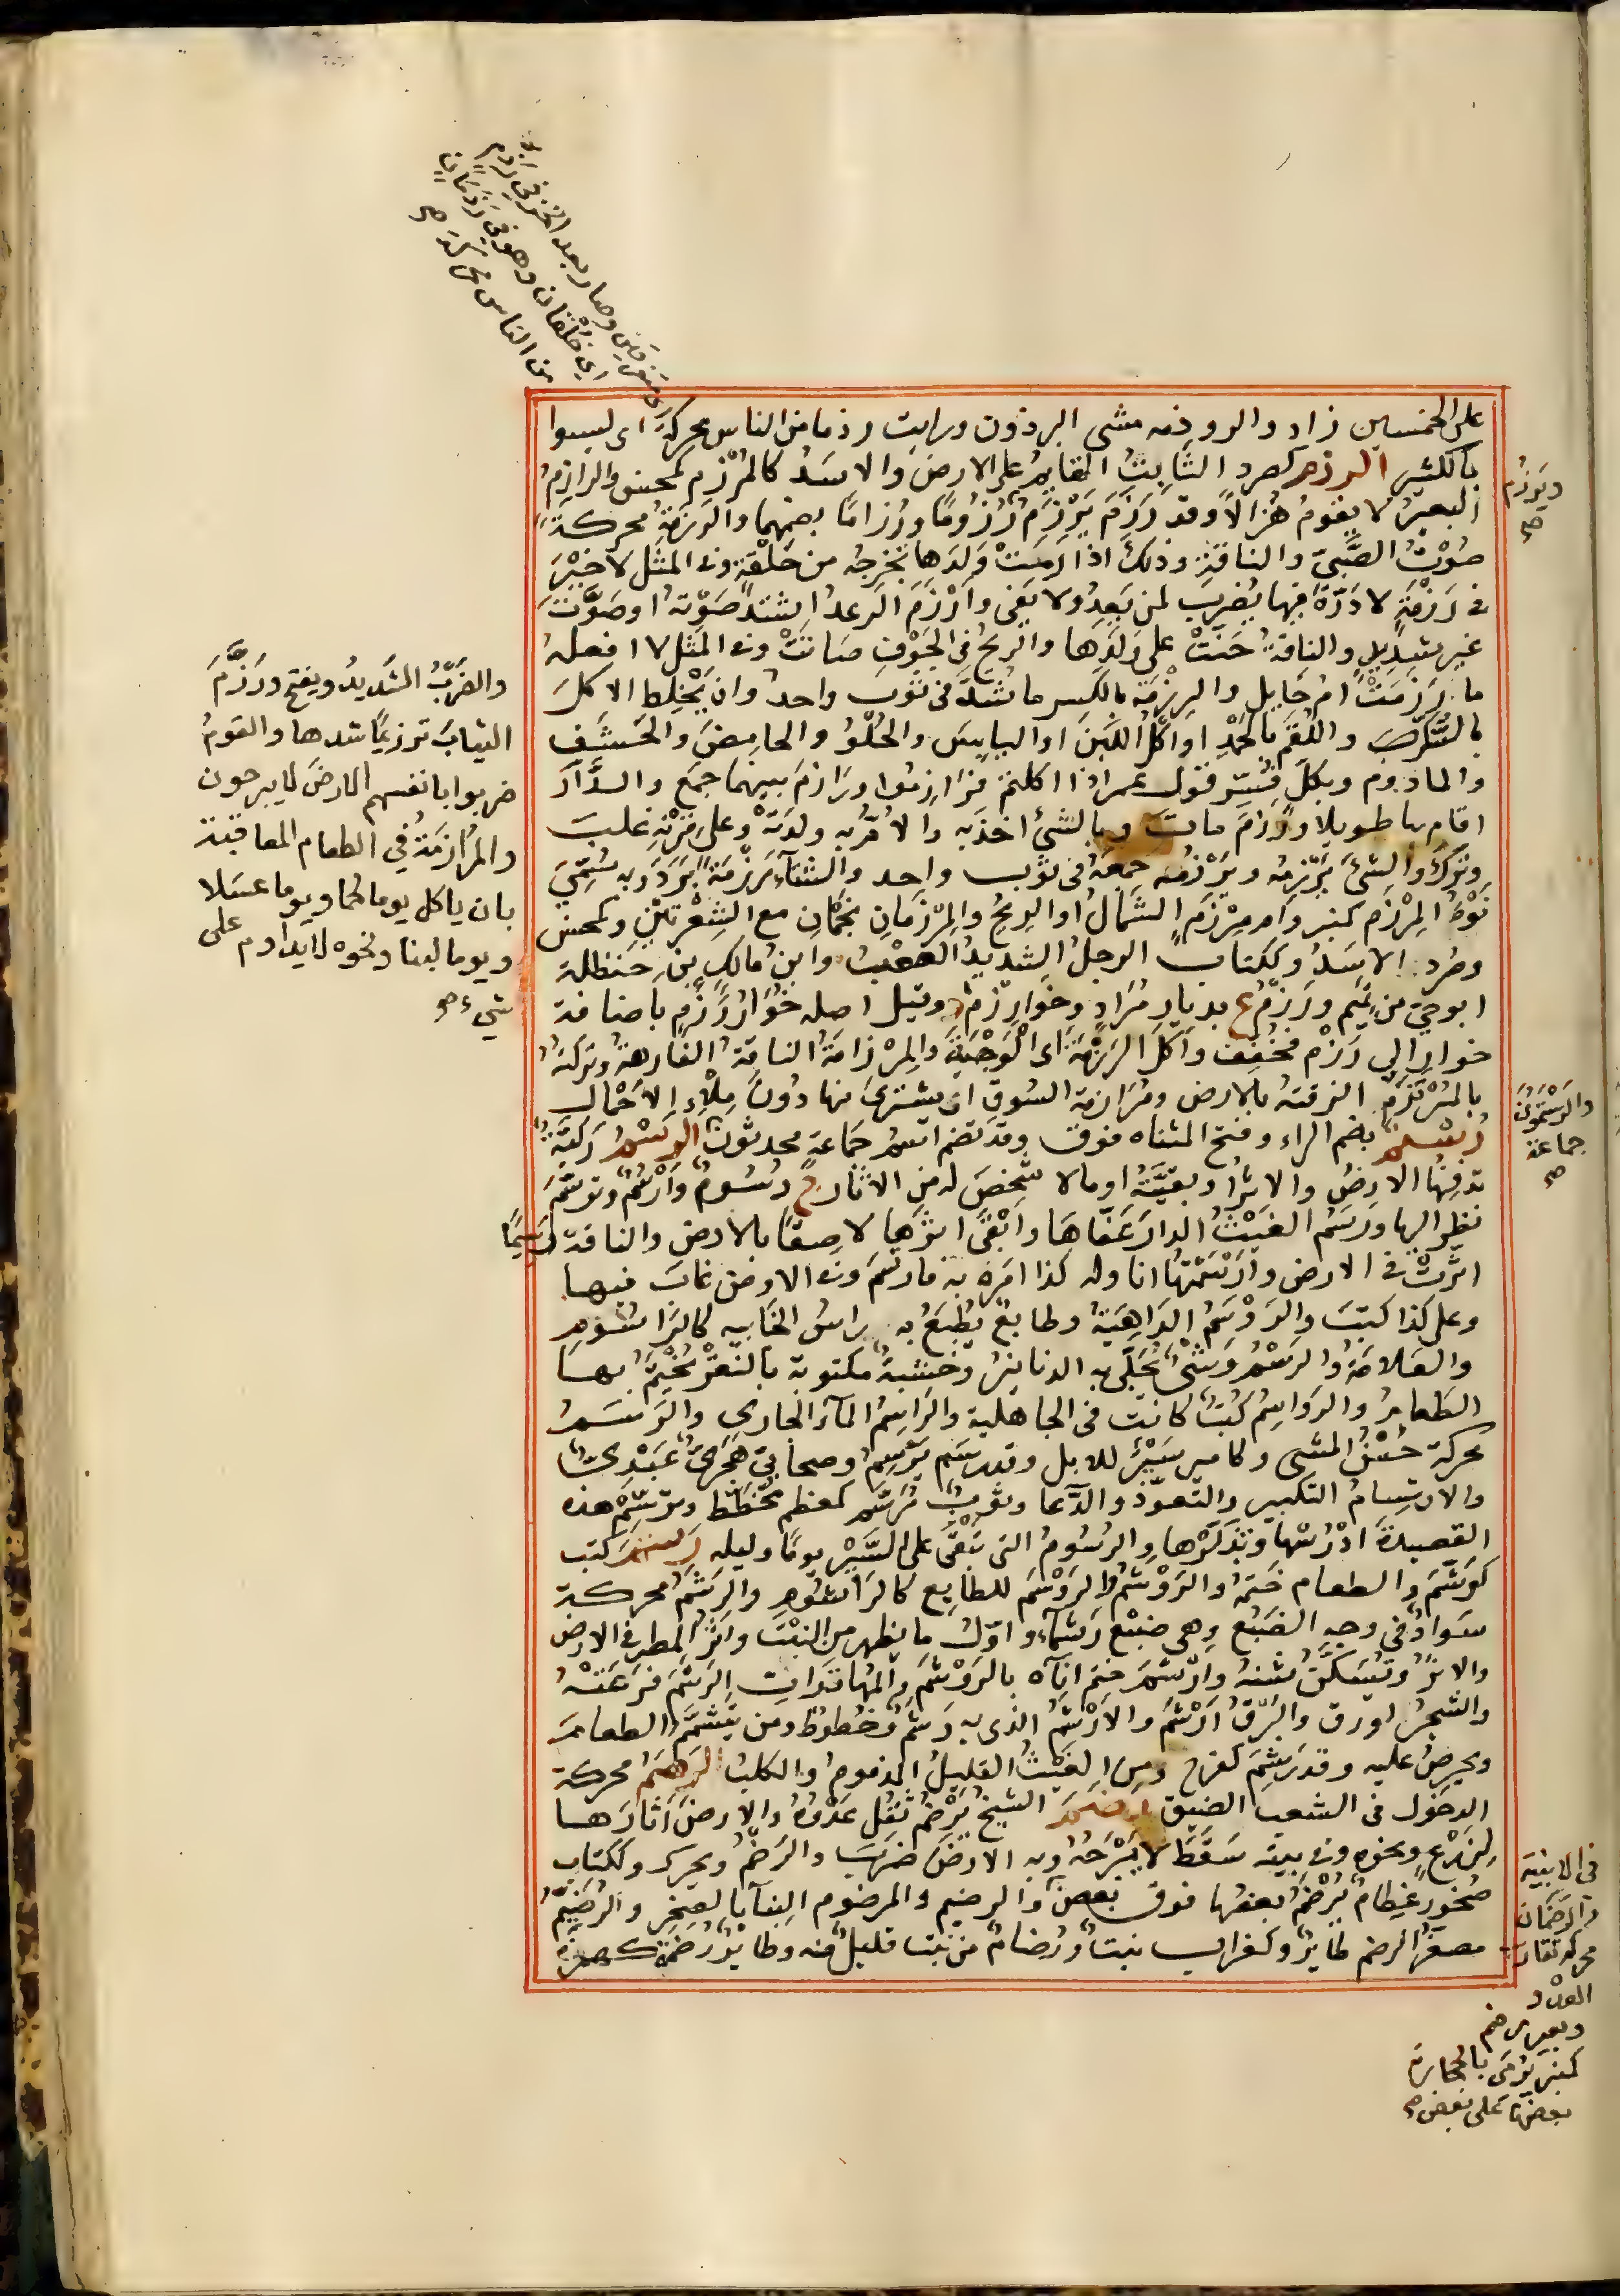 على الخمسين زاد والروذمه مشى البرذون ورايت رذما من الناس محركة اى ليسوا
بالكثير الرزم كصرد الثابت القايم على الارض والاسد كالمرزم كمحسن والرازم
البعير لا يقوم هزالا وقد رزم يرزم رزوما ورزاما بضمهما والرزمة محركة
صوت الصبى والناقة وذلك اذا رمت ولدها تخرجه من حلقة وفى المثل لا خير
فى رزمة لا درة فيها يضرب لمن يعد ولا يفى وارزم الرعد اشتد صوته او صوت
غير شديد والناقة حنت على ولدها والريح فى الجوف صاتت وفى المثل لا افعله
ما ارزمت ام حايل والرزمة بالكسر ما شد فى ثوب واحد وان يخلط الاكل
بالشكر واللقم بالحمد او اكل اللين او اليابس والحلو والحامض والخشف
والمادوم وبكل فسر قول عمر اذا اكلتم فرازموا ورازم بينهما جمع والدار
اقام بها طويلا ورزم مات وبالشئ اخذ به والام به ولدته وعلى قرنه غلب
وترك والشئ يرزمه ويرزمه جمعه فى ثوب واحد والشتاء رزمة برد وبه سمى
نوء المرزم كمنبر وام مرزم الشمال او الريح والمرزمان نجمان مع الشعرتين وكمحسن
وصرد الاسد وككتاب الرجل الشديد الصعب وابن مالك بن حنظلة
ابو حى من تميم ورزم ع بديار مراد وخوارزم د وقيل اصله خوار رزم باضافة
خوار الى رزم فخفف واكل الرزمة اى الوجبة والمرزامة الناقة الفارهة وتركته
بالمرتزم الزقته بالارض ومرازمة السوق ان يشترى منها دون ملاء الاحمال
رستم بضم الراء وفتح المثناه فوق وقد تضم اسم جماعة محدثون الرسم ركية
تدفنها الارض والاثر او بقيته او مالا شخص له من الاثار ج رسوم وارسم وترسم
نظر اليها ورسم الغيث الدار عفاها وابقى اثرها لاصقا بالارض والناقة رسيما
اثرت فى الارض وارسمتها انا وله كذا امره به فارتسم وفى الارض غاب فيها
وعلى كذا كتب والروسم الداهية وطابع يطبع به راس الخابيه كالراسوم
والعلامة والرسم وشئ تجلى به الدنانير وخشبة مكتوبة بالنقر يختم بها
الطعام والرواسم كتب كانت فى الجاهلية والراسم الماء الجارى والرسم
محركة حسن المشى وكامير سير للابل وقد رسم يرسم وصحابى هجرى عبدى
والارتسام التكبير والتعوذ والدعا وثوب مرسم كمعظم مخطط وترسم هذه
القصيدة ادرسها وتذكرها والرسوم التى تبقى على السير يوما وليله رشم كتب
كرشم والطعام ختمه والروشم والروسم للطابع كالراشوم والرشم محركة
سواد فى وجه الضبع وهى ضبع رشماء واول ما يظهر من النبت واثر المطر فى الارض
والاثر وتسكن شنه وارشم ختم اناه بالروشم والمهاة رات الرشم فرعته
والشجر اورق والبرق ارشم والارشم الذى به رشم وخطوط ومن يتشمم الطعام
ويحرص عليه وقد رشم كفرح ومن الغيث القليل المذموم والكلب الرصم محركة
الدخول فى الشعب الضيق رضم الشيخ يرضم ثقل عدوه والارض اثارها
لزرع ونحوه وفى بيته سقط لا يبرحه وبه الارض ضرب والرضم ويحرك وككتاب
صخور عظام يرضم بعضها فوق بعض والرضيم والمرضوم البنا بالصخر والرضيم
مصغر الرضم طاير وكغراب نبت ورضام من نبت قليل منه وطاير رضمة كهمزة
متفرقين وصار بعد الخز فى رذم
اى خلقان وهو فى رذمان
من الناس محركة صح
ويرزم
صح
والضرب الشديد ويفتح ورزم
الثياب ترزيما شدها والقوم
ضربوا بانفسهم الارض لا يبرحون
والمرازمة فى الطعام المعاقبة
بان ياكل يوما لحما ويوما عسلا
ويوما لبنا ونحوه لا يداوم على
شىء صح
والرستميون
جماعة
صح
فى الابنية
والرضمان
محركة تقارب
العدو
وبعير مرضم
كمنبر يرمى بالحجارة
بعضها على بعض صح